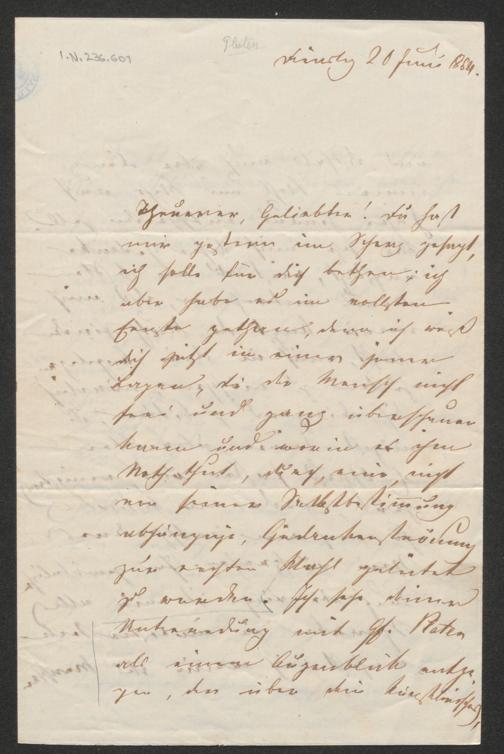 I.N. 236.601
Platen
Dienstag 20 Juni 1854.
Theuerer, Geliebter! Du hast
mir gestern im Scherz gesagt,
ich solle für dich bethen; ich
aber habe es im vollsten
Ernste gethan, denn ich weiß
dich jetzt in einer jener
Lagen, die der Mensch nicht
frei und ganz überschauen
kann und worin es ihm
Noth thut, durch eine, nicht
von seiner Selbstbestimmung
abhängige, Gedankenströmung
zur rechten Wahl geleitet
zu werden. Ich sehe deiner
Unterredung mit Gf. Platen
als einem Augenblick entge-
gen, der über die